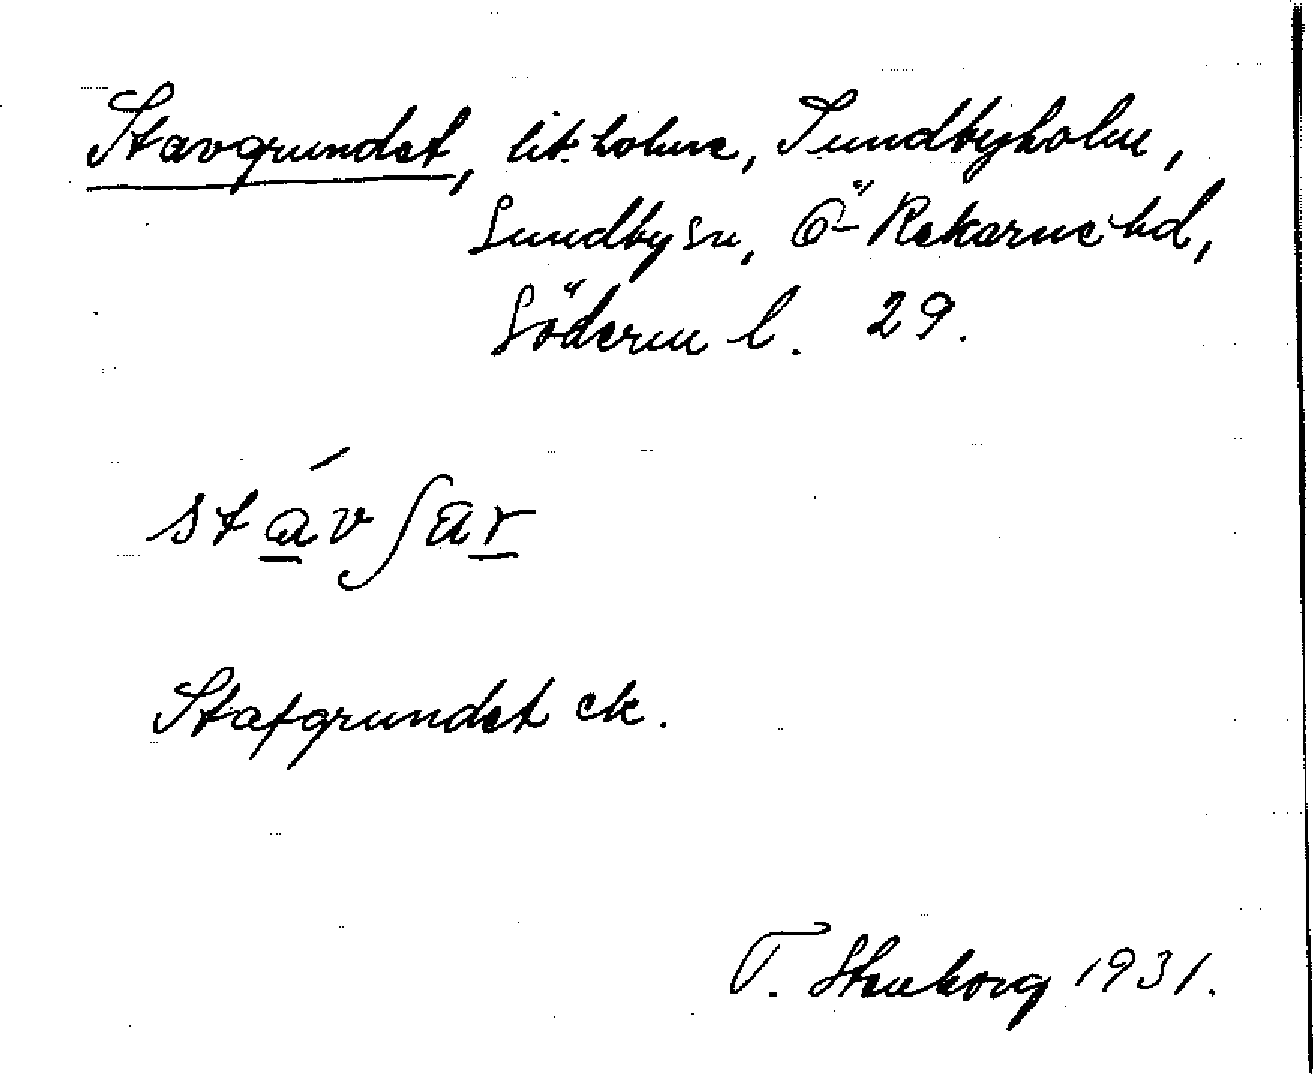 Stavgrundet, lit. holme, Sundbyholm,
Sundby sn, Ö- Rekarne hd,
Söderm l. 29.
stávʃär
Stafgrundet ek.
T. Stenborg 1931.